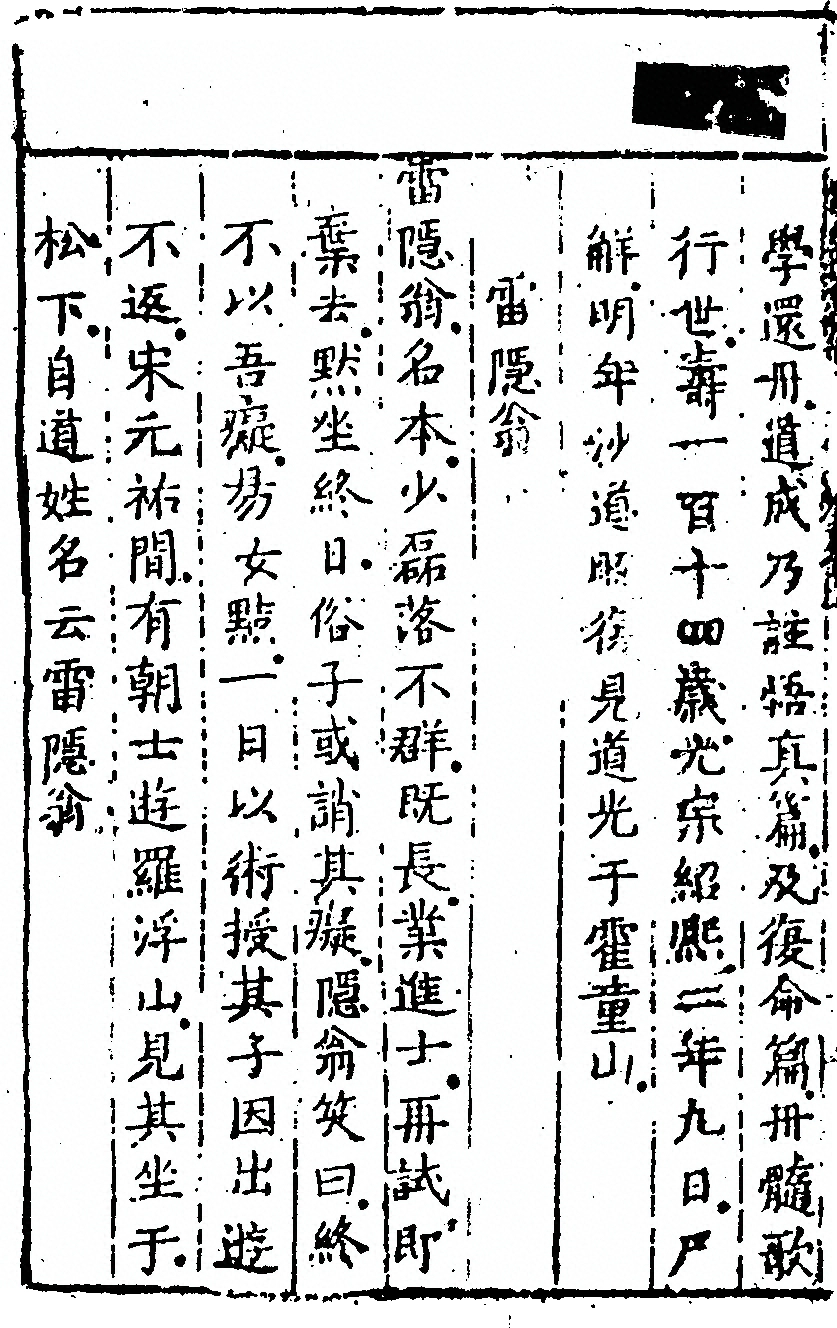 學還丹道成乃註悟真篇及復命篇丹髓歌
行世壽一百十四歲光宗紹熙二年九日尸
解明年沙道昭復見道光于霍童山
雷隱翁
雷隱翁名本少磊落不群既長業進士再試即
棄去默坐終日俗子或誚其癡隱翁笑曰終
不以吾癡易女點一日以術授其子因出遊
不返宋元祐間有朝士遊羅浮山見其坐于
松下自道姓名云雷隱翁